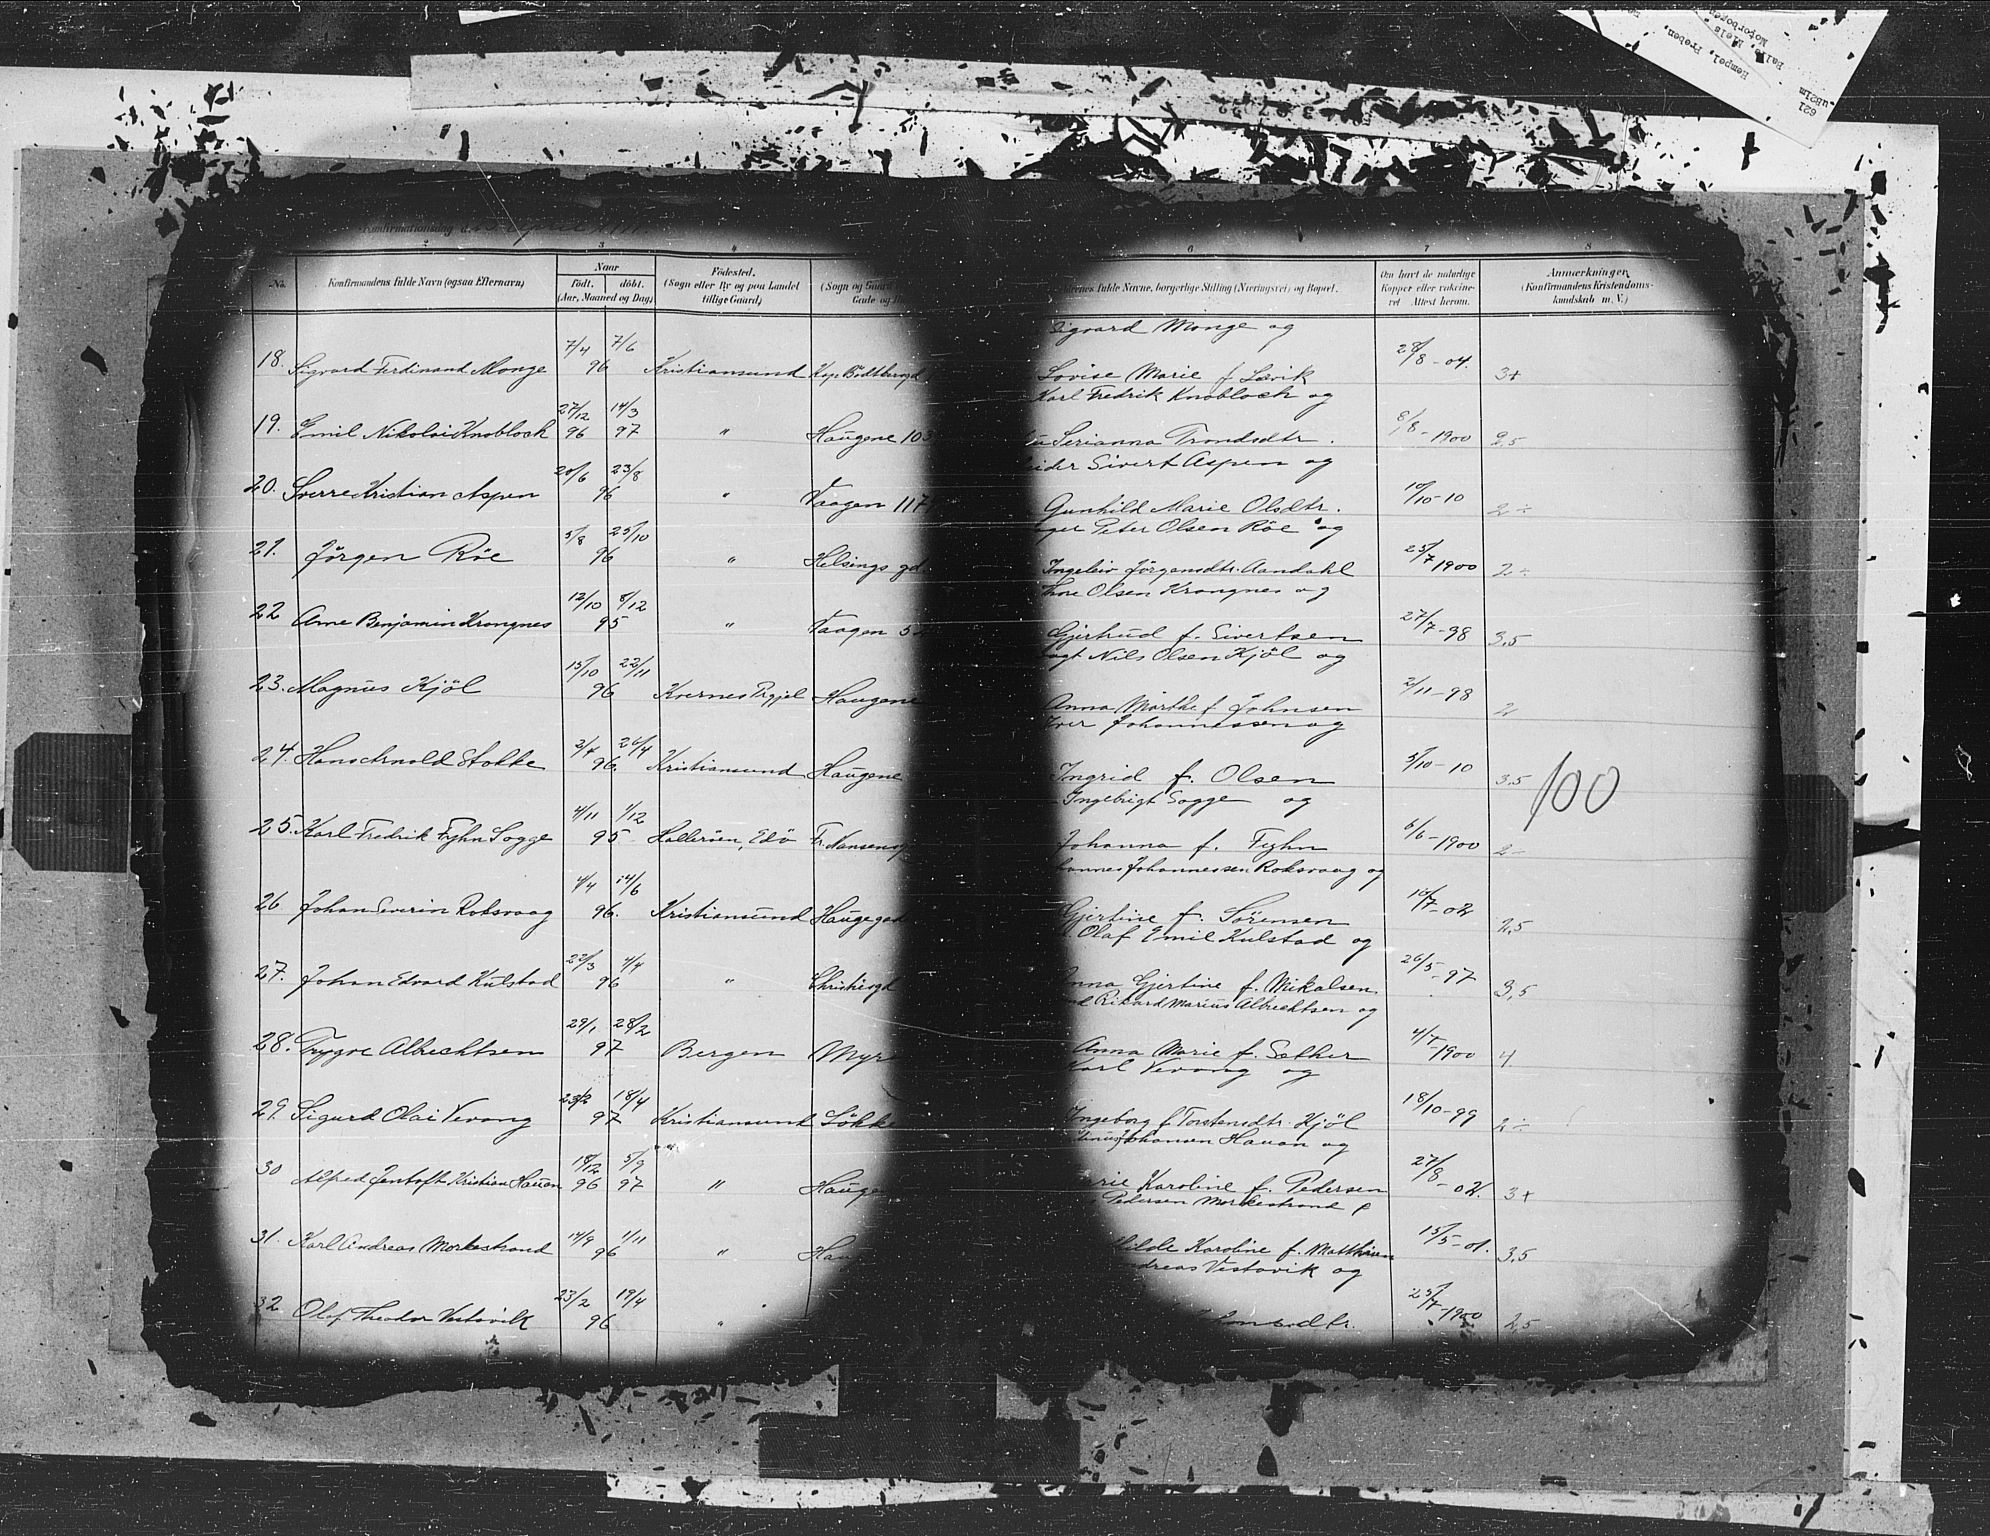 Konfirmationsdag
2 3 4 6 7 8
No. Konfirmandens fulde Navn (ogsaa Efternavn) Naar født. døbt. (Aar, Maaned og Dag) Fødested. (Sogn eller By og paa Landet tillige Gaard) (Sogn og Gaard Gade og fulde Navne, borgerlige Stilling (Næringsvei) og Bopæl. Om havt de naturlige Kopper eller vakcineret Attest herom. Anmærkninger (Konfirmandens Kristendomskundskab m. V.)
Sigvard Monge og
18. Sigvard Ferdinand Monge 7/4 7/6 96 Kristiansund Lovise Marie f. Lervik 28/8-04. 3+
Karl Fredrik Knobloch og
19. Emil Nikolai Knobloch 27/12 96 14/3 97 " Haugene 103 Serianna Trondsdtr. 8/8-1900 2,5
Sivert Aspen og
20. Sverre Kristian Aspen 20/6 23/8 96 " Vaagen 117 Gunhild Marie Olsdtr. 10/10-10 2÷
Peter Olsen Röe og
21. Jörgen Röe 5/8 25/10 96 " Helsingsgd. Ingeleiv Jörgensdtr. Aandahl 25/7 1900 2÷
Olsen Krongnes og
22 Arne Benjamin Krongnes 12/10 8/12 95 " Vaagen Gjertrud f. Sivertsen 27/7-98 3,5
Nils Olsen Kjöl og
23. Magnus Kjöl 15/10 22/11 96 Kvernes Prgjel Haugene Anna Marthe f. Johnsen 2/11-98 2
Iver Johannessen og
24. Hans Arnold Stokke 2/4 26/4 96. Kristiansund Haugene Ingrid f. Olsen 5/10-10 3,5
100
Ingebrigt Sogge og
25. Karl Fredrik Fyhn Sogge 4/11 1/12 95 Hallerøen, Edö Fr. Nansensg Johanna f. Fyhn 6/6-1900 2÷
Johannessen Roksvaag og
26 Johan Severin Roksvaag 4/4 14/6 96. Kristiansund Haugegad Gjertine f. Sörensen 10/7-02 2,5
Olaf Emil Kulstad og
27. Johan Edvard Kulstad 22/3 4/4 96 " Christiesgd Anna Gjertine f. Mikalsen 26/5-97 3,5
Rikard Marius Albrechtsen og
28. Trygve Albrechtsen 29/1 28/2 97 Bergen Myr Anna Marie f. Sæther 4/7-1900 4
Karl Vevang og
29. Sigurd Olai Vevang 23/2 18/4 97 Kristiansund Lökke Ingeborg f. Torstensdtr. Kjöl 18/10-99 2÷
Johansen Hauan og
30 Alfred Jentoft Kristian Hauan 18/12 96 5/9 97 " Hauge Karoline f. Pedersen 27/8-02. 3+
Pedersen Morkestrand
31. Karl Andreas Morkestrand 14/9 1/11 96 " Hau Karoline f. Matthisen 15/5-01. 3,5
Vestavik og
32 Olaf Theodor Vestavik 23/2 19/4 96 " 25/7-1900 2,5
Hempel, Preben,
Palle Niels
Motorbogen
621